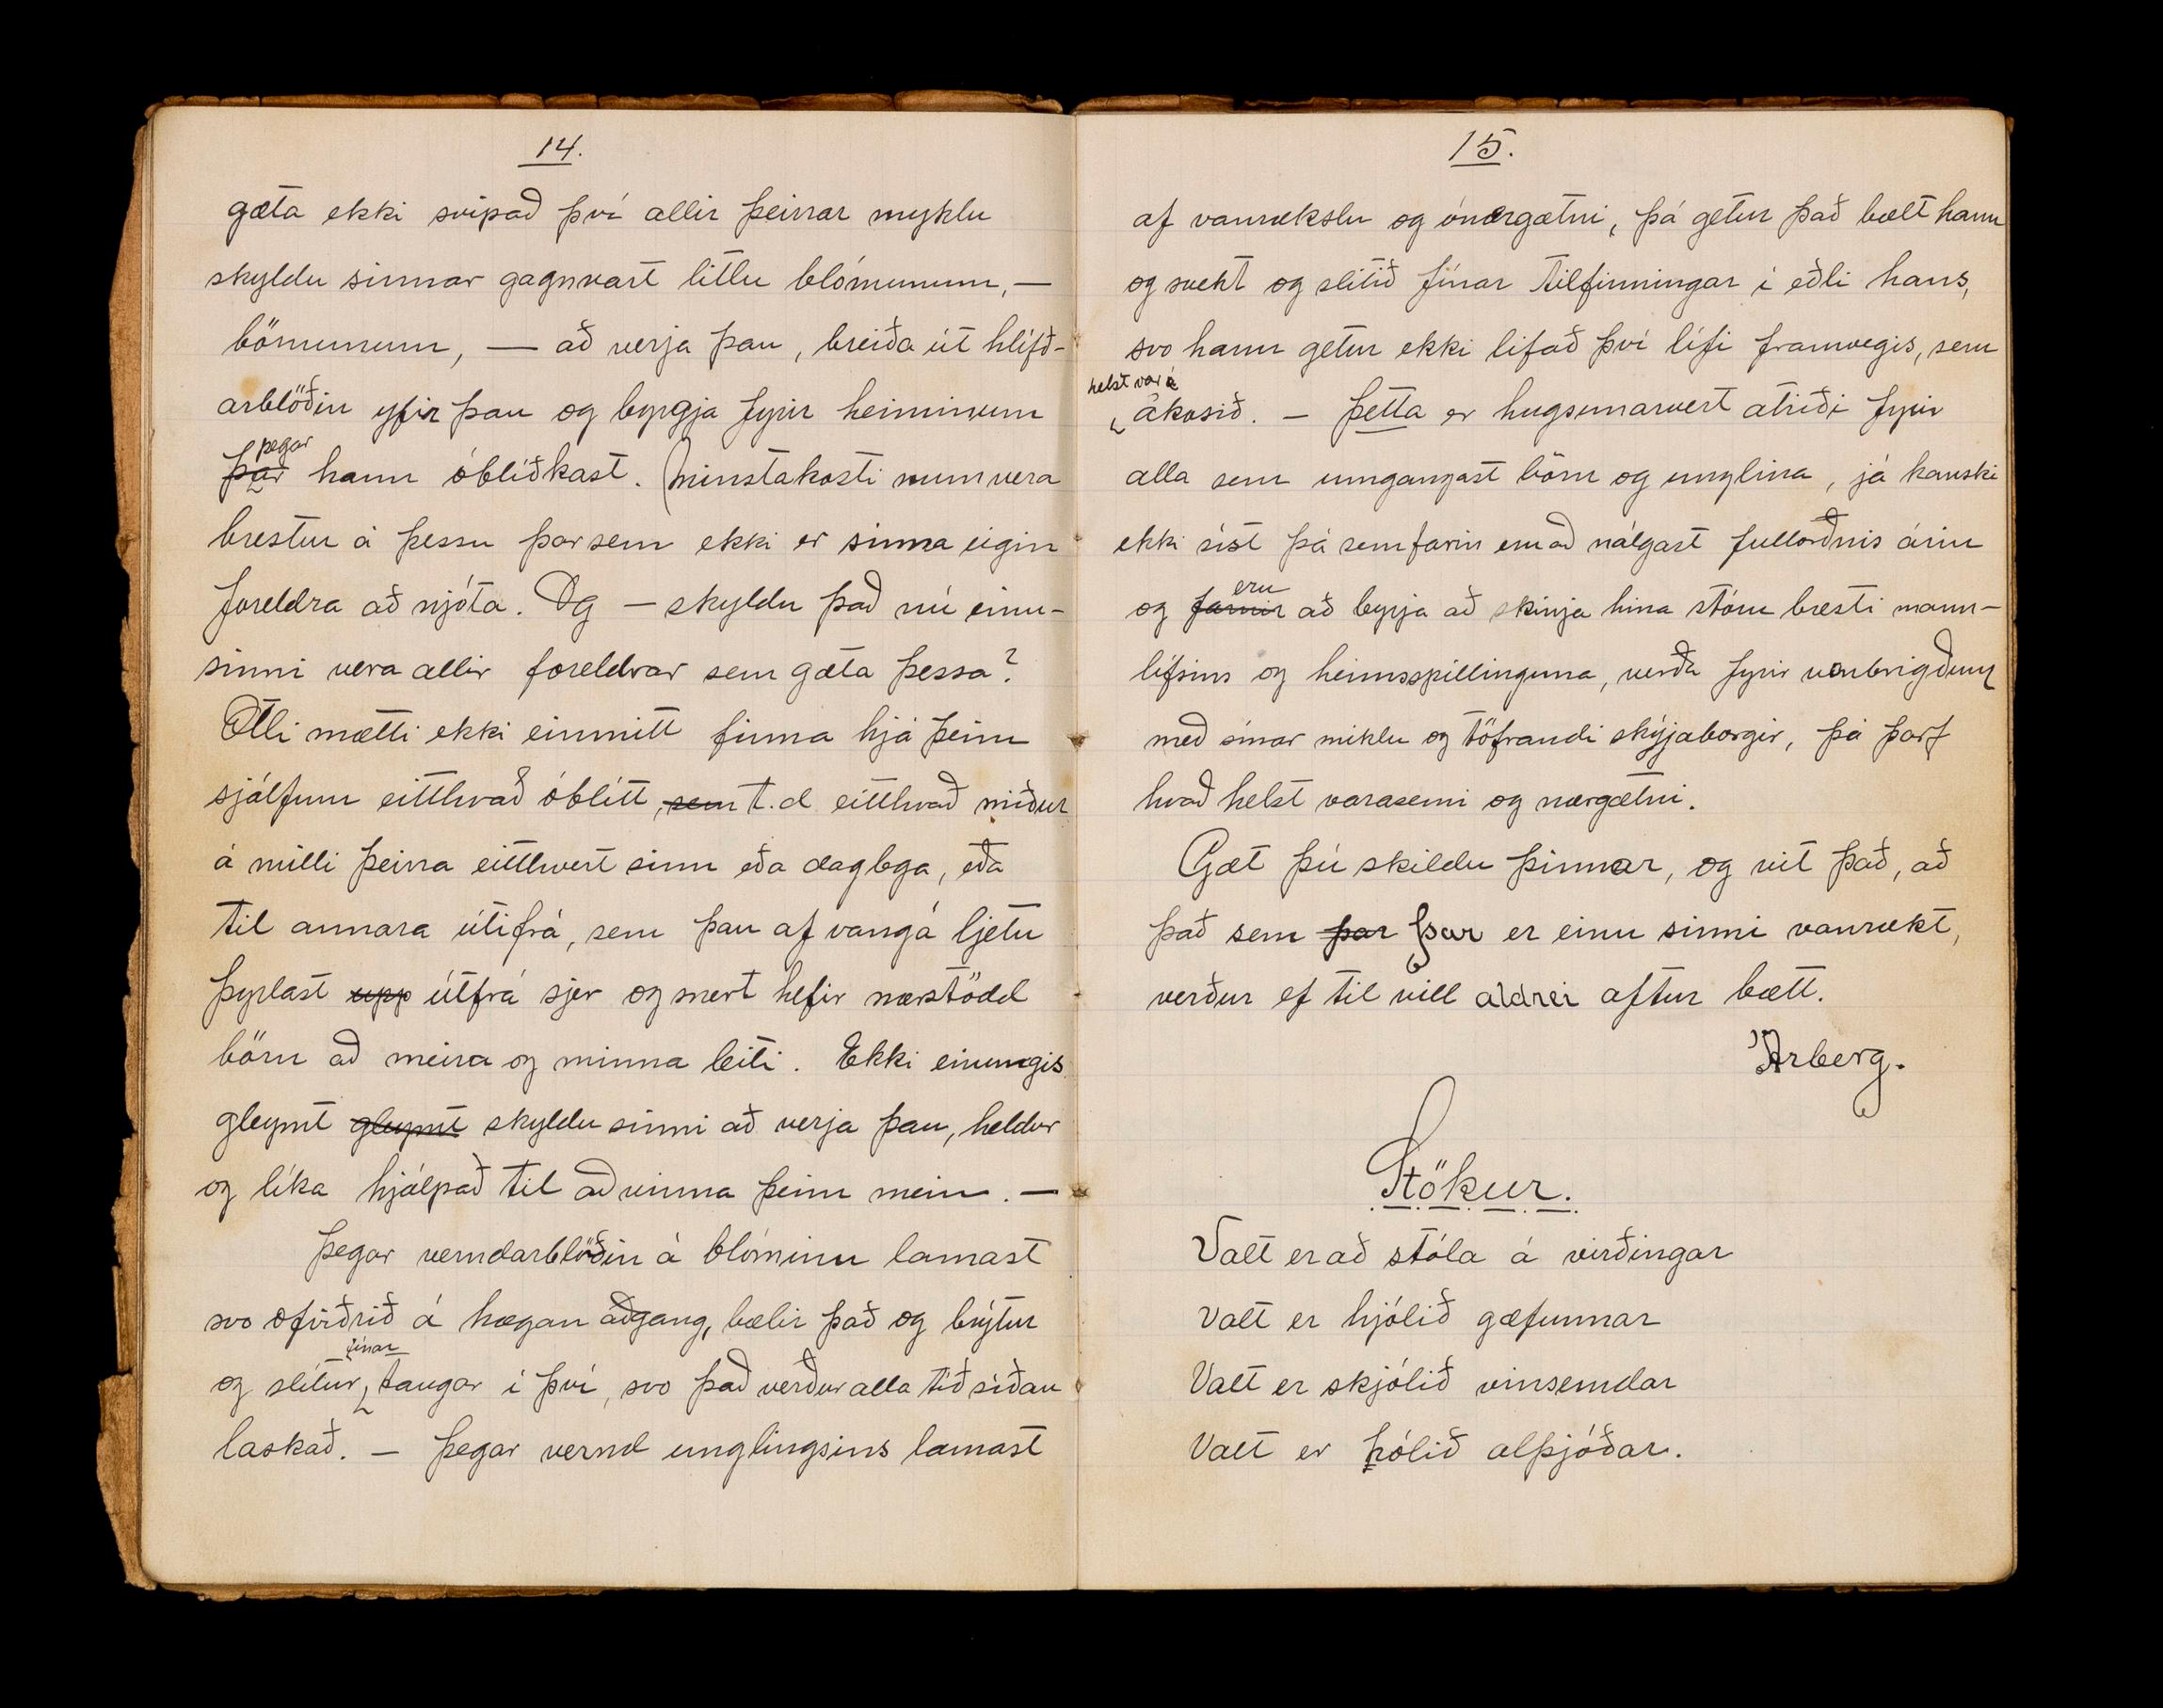 14.
gæta ekki svipað því allir þeirrar myklu
skyldu sinnar gagnvart litlu blómunum, —
börnunum, — að verja þau, breiða út hlífð-
arblöðin yfir þau og byrgja fyrir heiminum
þegar
þar hann óblíðkast. (minstakosti mun vera
brestur á þessu þarsem ekki er sinna eigin
foreldra að njóta. Og — skyldu það nú einu-
sinni vera allir foreldrar sem gæta þessa?
Ætli mætti ekki einmitt finna hjá þeim
sjálfum eitthvað óblítt, sem t.d eitthvað miður
á milli þeirra eitthvert sinn eða daglega, eða
til annara útífrá, sem þau af vangá ljetu
þyrlast upp útfrá sjer og snert hefir nærstödd
börn að meira og minna leiti. Ekki einungis
gleymt gleymt skyldu sinni að verja þau, heldur
og líka hjálpað til að vinna þeim mein. —
Þegar verndarblöðin á blóminu lamast
svo ofviðrið á hægan aðgang, bælir það og brýtur
fínar
og slítur, taugar í því, svo það verður alla tíð síðan
laskað. — Þegar vernd unglingsins lamast
15.
af vanrækslu og ónærgætni, þá getur það bælt hann
og svekt og slitið fínar tilfinningar í eðli hans,
svo hann getur ekki lifað því lífi framvegis, sem
helst var á
ákosið. — Þetta er hugsunarvert atriði fyrir
alla sem umgangast börn og unglina, já kanski
ekki síst þá sem farin eru að nálgast fullorðnis árin
eru
og farnir að byrja að skinja hina stóru bresti mann-
lífsins og heimsspillinguna, verða fyrir vonbrigðum
með sínar miklu og töfrandi skýjaborgir, þá þarf
hvað helst varasemi og nærgætni.
Gæt þú skildu þinnar, og vit það, að
það sem þar þar er einu sinni vanrækt,
verður ef til vill aldrei aftur bætt.
Árberg.
Stökur.
Valt er að stóla á virðingar
Valt er hjólið gæfunnar
Valt er skjólið vinsemdar
Valt er hólið alþjóðar.